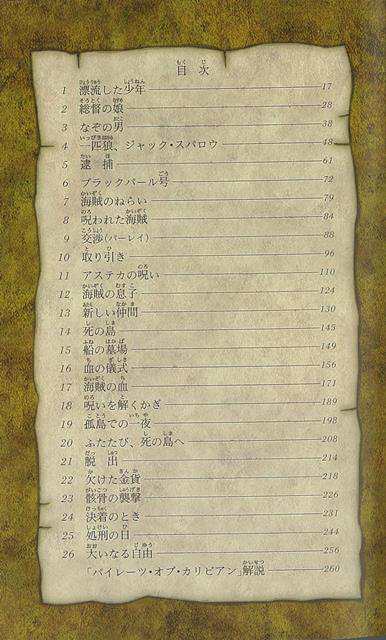 目次
1 漂流した少年 17
2 総督の娘 28
3 なぞの男 38
4 一匹狼、ジャック・スパロウ 48
5 逮捕 61
6 ブラックパール号 72
7 海賊のねらい 79
8 呪われた海賊 84
9 交渉(パーレイ) 88
10 取り引き 96
11 アステカの呪い 110
12 海賊の息子 124
13 新しい仲間 130
14 死の島 145
15 船の墓場 149
16 血の儀式 156
17 海賊の血 171
18 呪いを解くかぎ 189
19 孤島での一夜 198
20 ふたたび、死の島へ 208
21 脱出 214
22 欠けた金貨 218
23 骸骨の襲撃 226
24 決着のとき 231
25 処刑の日 244
26 大いなる自由 256
「パイレーツ・オブ・カリビアン」解説 260